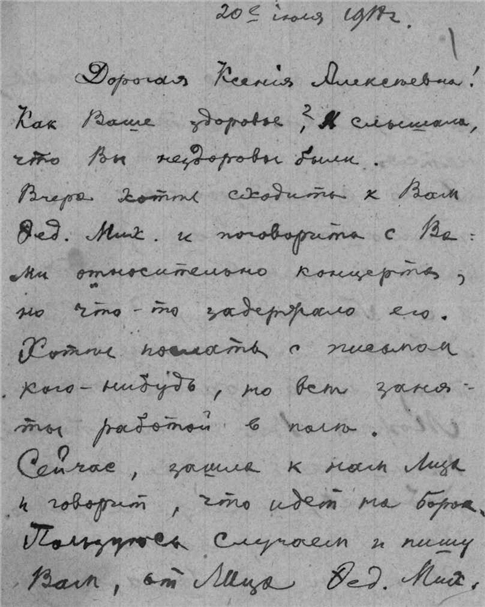 20е июля 191 г.
Дорогая Ксенія Алексѣевна!
Как Ваше здоровье? Я слышала,
что Вы нездоровы были.
Вчера хотѣл сходить к Вам
Фед. Мих. и поговорить с Ва=
ми относительно концерта,
но что-то задержало его.
Хотѣл послать с письмом
кого-нибудь, но всѣ заня=
ты работой в полѣ.
Сейчас, зашла к нам Лиза
и говорит, что идет на
Пользуюсь случаем и пишу
Вам, от лица Фед. Мих.